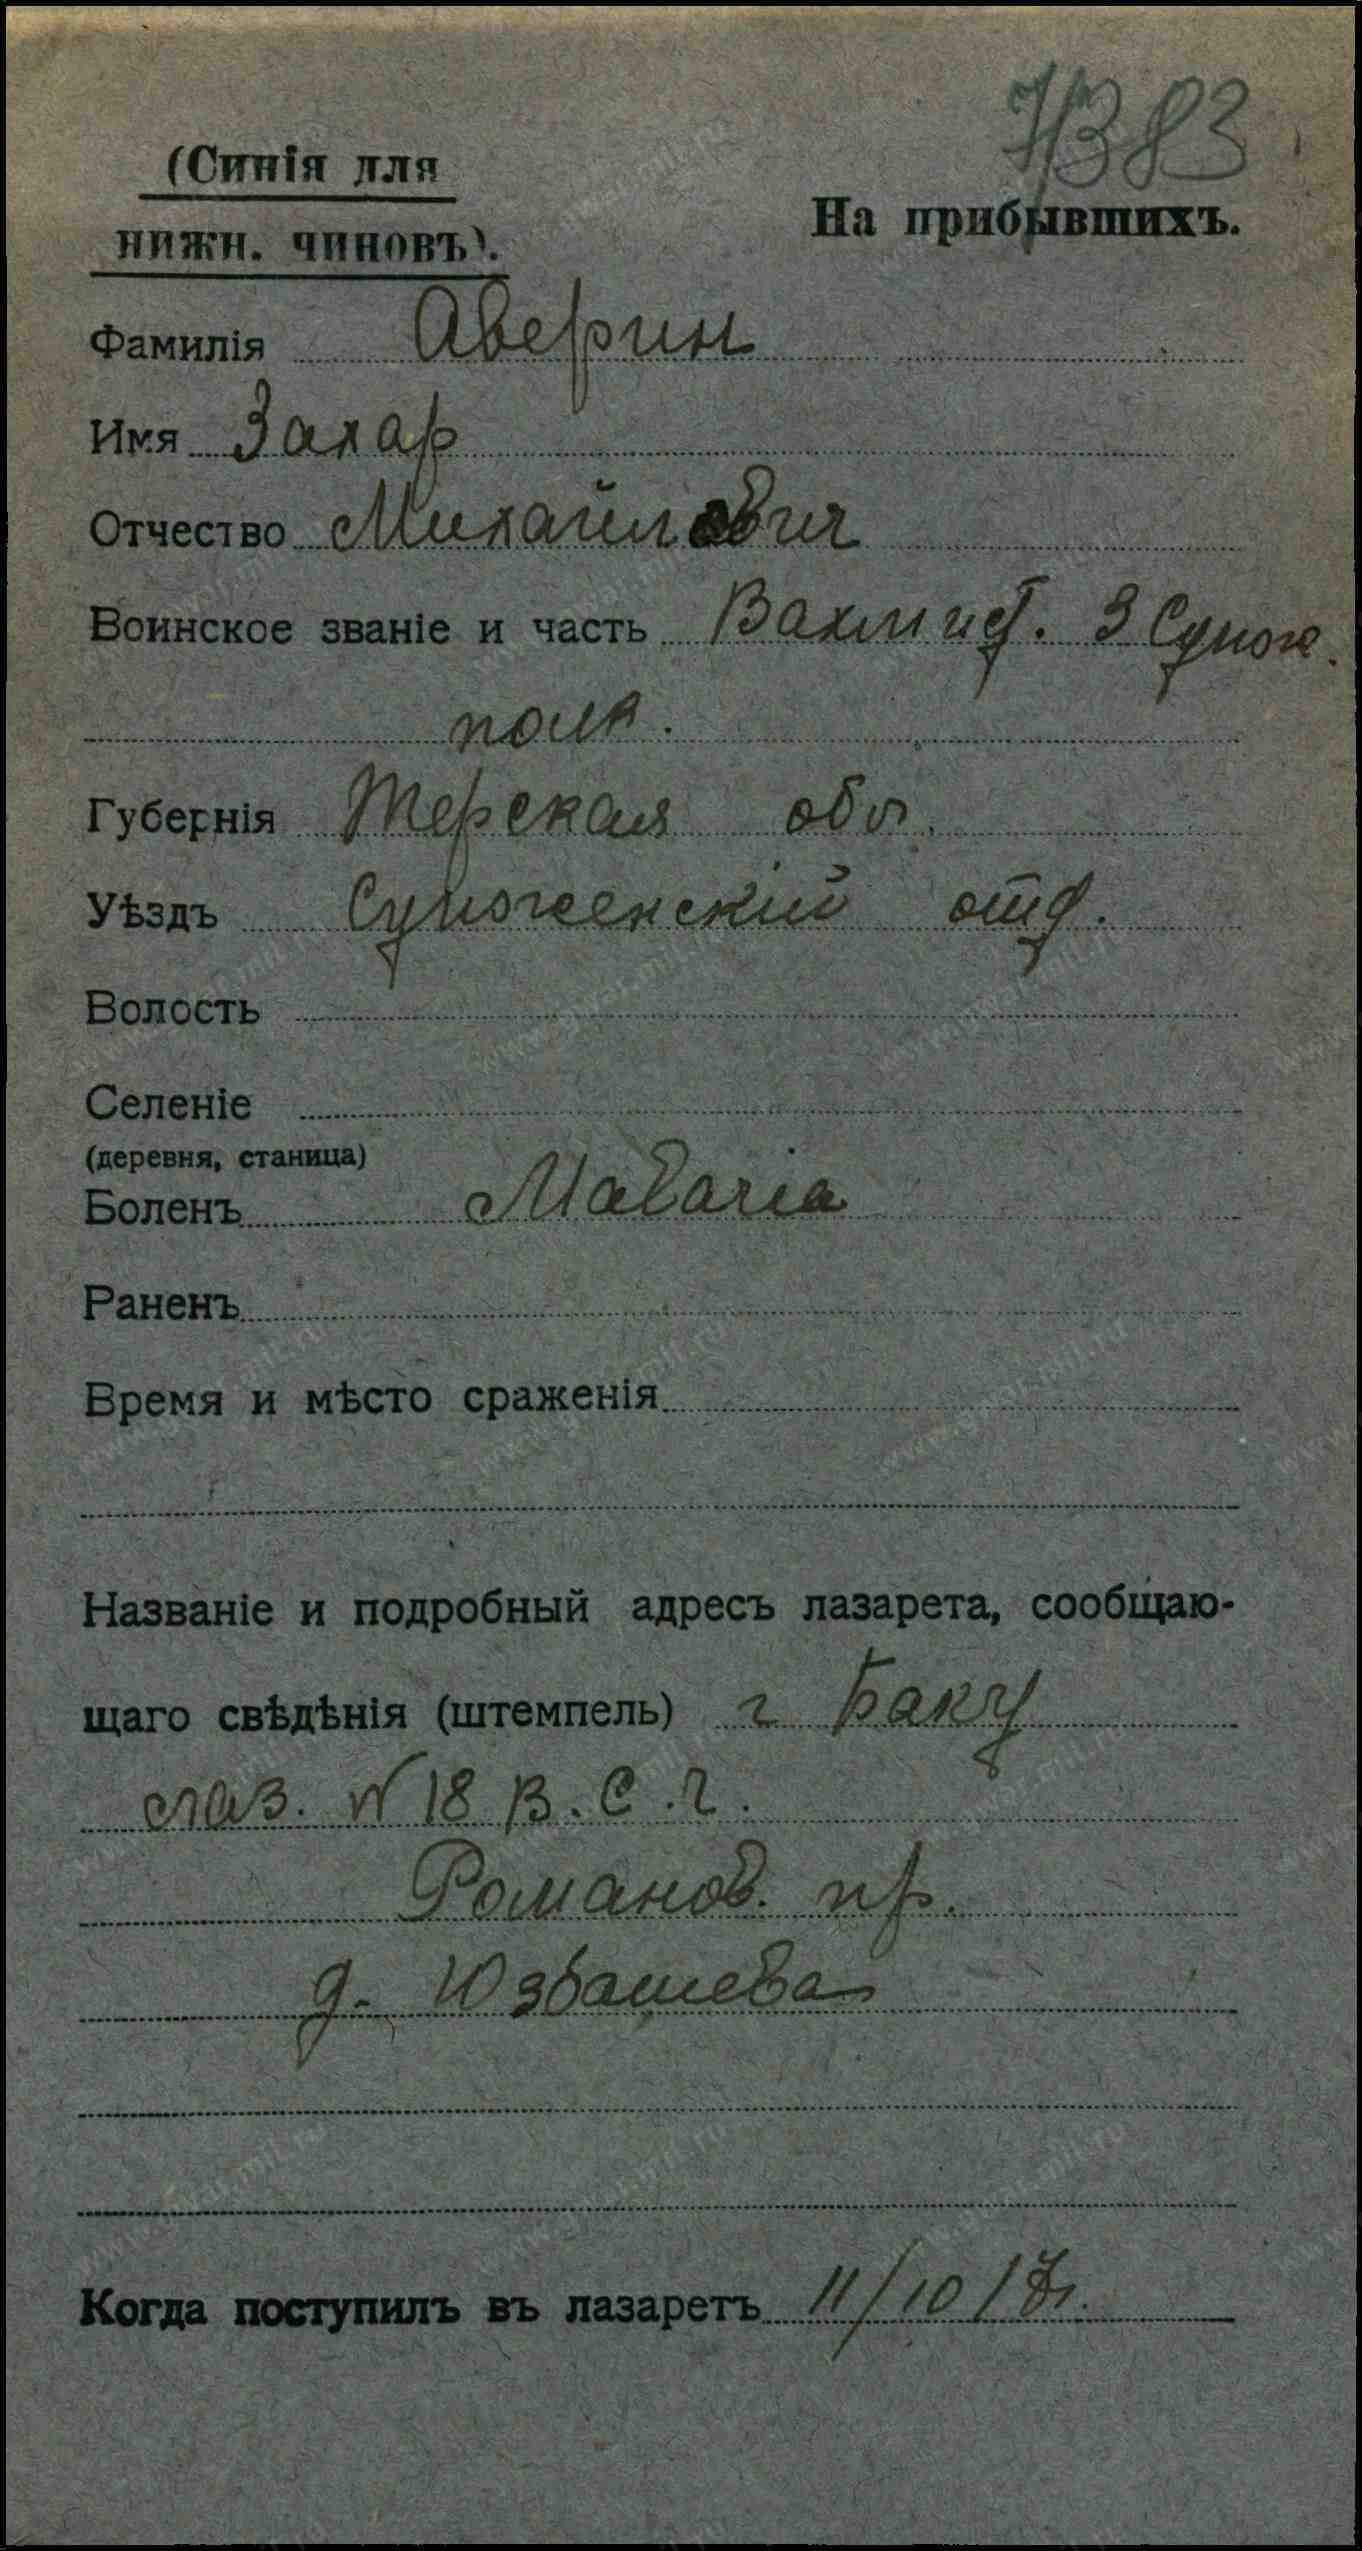 7383
(Синія для
На прибывшихъ.
нижн. чиновъ).
Фамилія Аверин
Имя Захар
Отчество Михайлович
Воинское званіе и часть Вахмист. 3 Сунж.
полк.
Губернія Терская обл.
Уѣздъ Сунженский отд.
Волость
Селеніе
(деревня, станица)
Боленъ Malaria
Раненъ
Время и мѣсто сраженія
Названіе и подробный адресъ лазарета, сообщаю-
щаго свѣдѣнія (штемпель) г Баку
лаз. N 18 В. С. г.
Романов. пр.
д. Юзбашева
Когда поступилъ въ лазаретъ 11/10/17г.